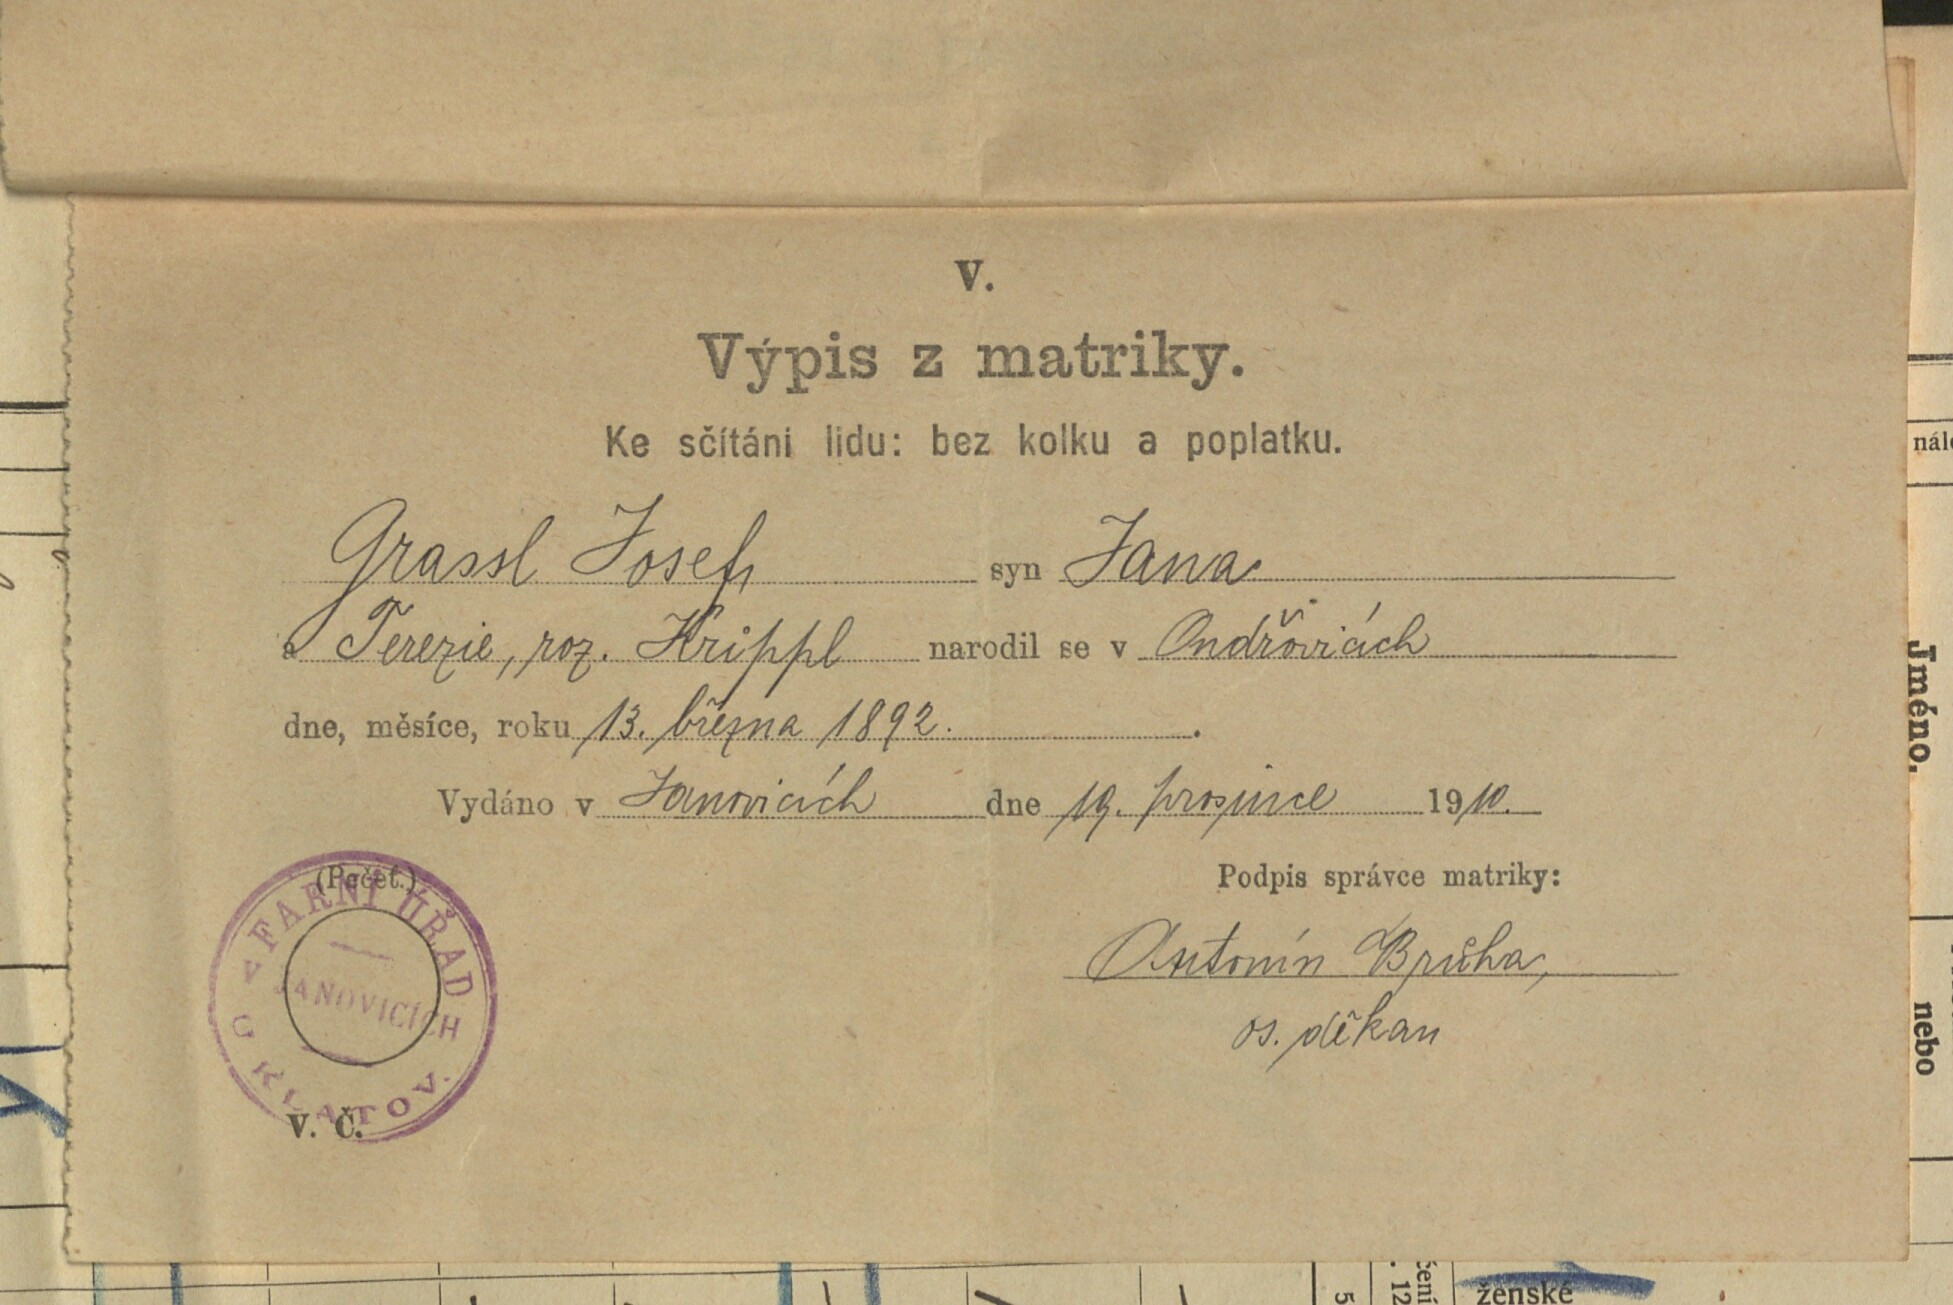 V.
Výpis z matriky.
Ke sčítáni lidu: bez kolku a poplatku.
Grassl Josef, syn Jana
a Terezie, roz. Krippl narodil se v Ondřovicích
dne, měsíce, roku 13. března 1892.
Vydáno v Janovicích dne 19. prosince 1910.
(Pečeť.)
FARNÍ ÚŘAD
v JANOVICÍCH
U KLATOV.
Podpis správce matriky:
Antonín Brůha,
os. děkan
V. Č.
nále
Jméno.
nebo
5
čení
. 12
ženské